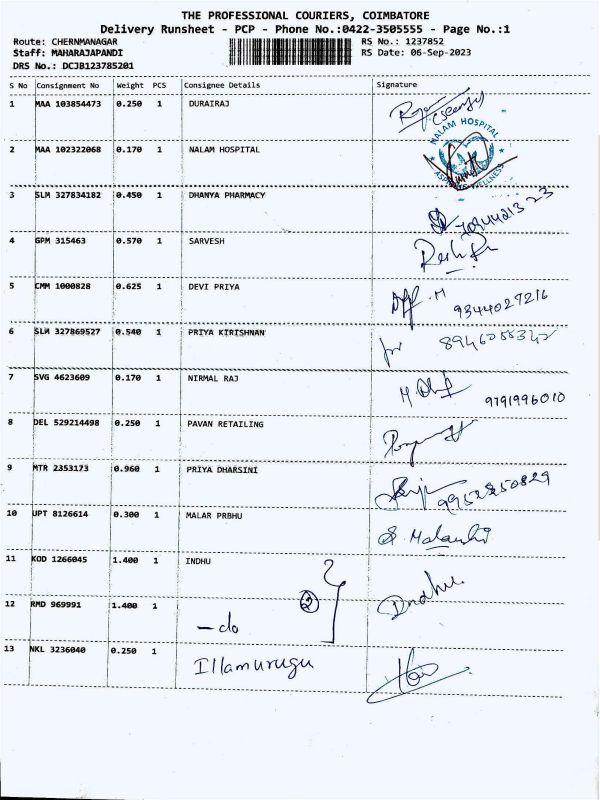 THE PROFESSIONAL COURIERS, COIMBATORE
Delivery Runsheet - PCP - Phone No.:0422-3505555 - Page No.:1
Route: CHERNMANAGAR RS No.: 1237852
Staff: MAHARAJAPANDI RS Date: 06-Sep-2023
DRS No.: DCJB123785201
S No Consignment No Weight PCS Consignee Details Signature
1 MAA 103854473 0.250 1 DURAIRAJ
2 MAA 102322068 0.170 1 NALAM HOSPITAL NALAM HOSPITAL
3 SLM 327834182 0.450 1 DHANYA PHARMACY
4 GPM 315463 0.570 1 SARVESH
5 CMM 1000828 0.625 1 DEVI PRIYA 9344029216
6 SLM 327869527 0.540 1 PRIYA KIRISHNAN
7 SVG 4623609 0.170 1 NIRMAL RAJ 9791996010
8 DEL 529214498 0.250 1 PAVAN RETAILING
9 MTR 2353173 0.960 1 PRIYA DHARSINI 9952850829
10 UPT 8126614 0.300 1 MALAR PRBHU
11 KOD 1266045 1.400 1 INDHU
12 RMD 969991 1.400 1 - do 2 Indhu
13 NKL 3236040 0.250 1 Illamurugu